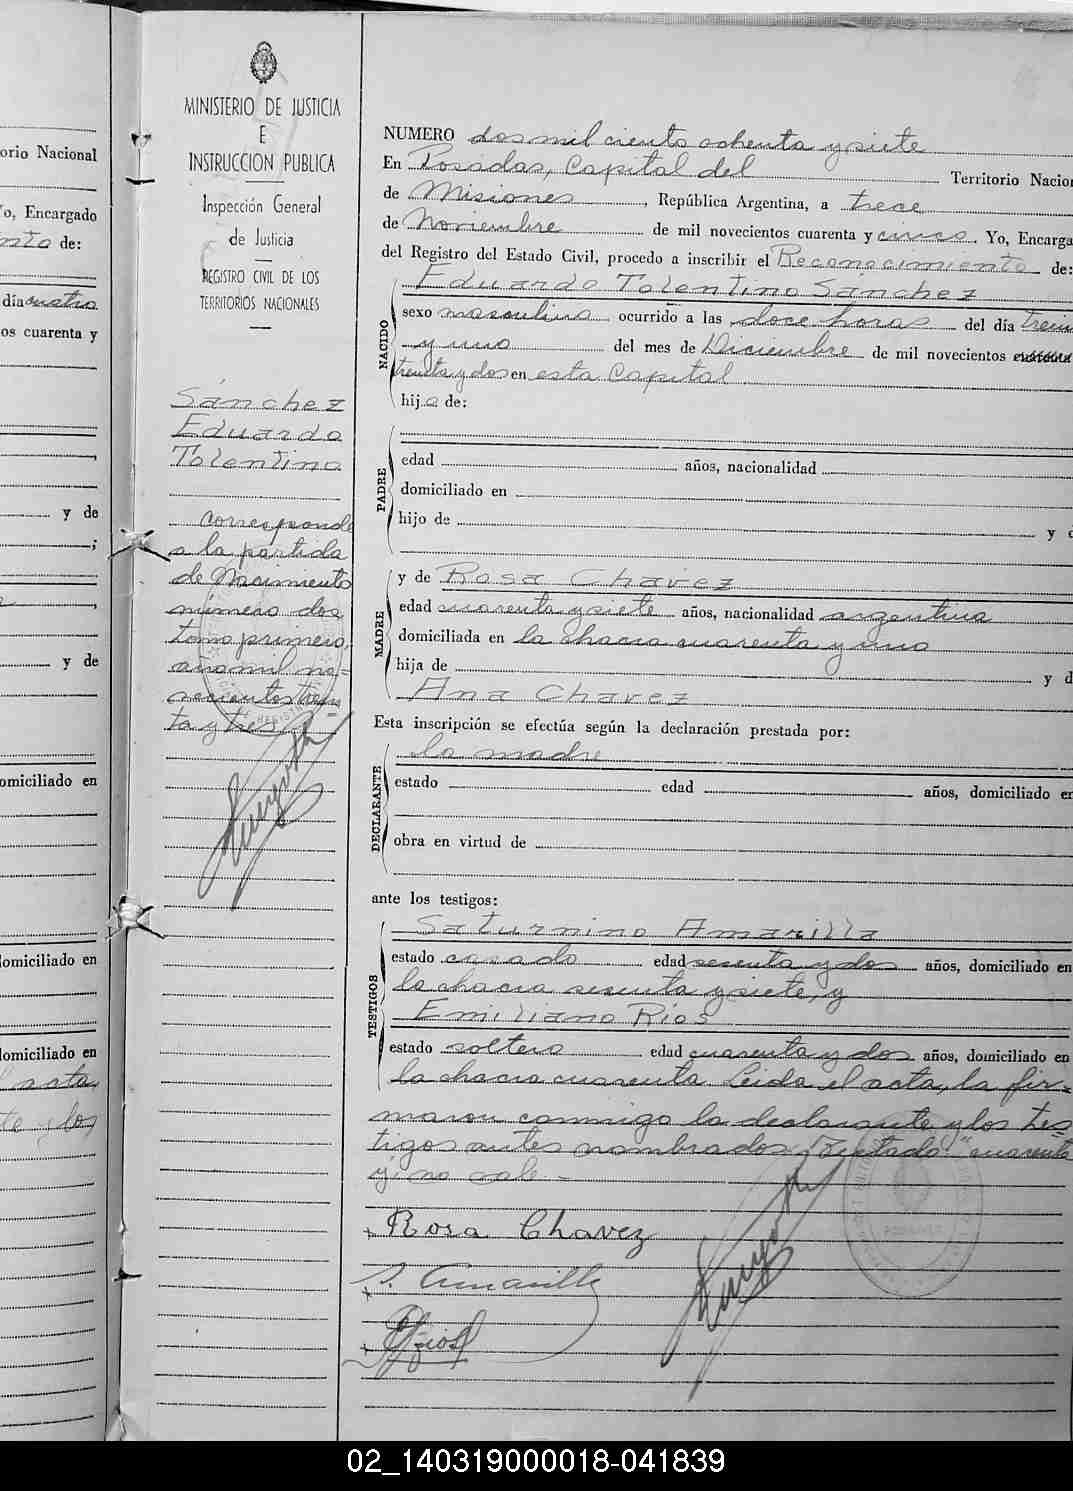 MINISTERIO DE JUSTICIA
E
INSTRUCCION PUBLICA
Inspección General
de Justicia
REGISTRO CIVIL DE LOS
TERRITORIOS NACIONALES
Sánchez
Eduardo
Tolentino
Corresponde
a la partida
de Nacimiento
número dos
tomo primero,
año mil no=
vecientos trein=
ta y tres
NUMERO dos mil ciento ochenta y siete
En Posadas, Capital del Territorio Nacion
de Misiones, República Argentina, a trece
de Noviembre de mil novecientos cuarenta y cinco. Yo, Encarga
del Registro del Estado Civil, procedo a inscribir el Reconocimiento de:
NACIDO
Eduardo Tolentino Sánchez
sexo masculino ocurrido a las doce horas del día trein
y uno del mes de Diciembre de mil novecientos cuarenta
treinta y dos en esta Capital
hijo de:
PADRE
edad años, nacionalidad
domiciliado en
hijo de y d
MADRE
y de Rosa Chavez
edad cuarenta y siete años, nacionalidad argentina
domiciliada en la chacra cuarenta y uno
hija de y d
Ana Chavez
Esta inscripción se efectúa según la declaración prestada por:
DECLARANTE
la madre
estado edad años, domiciliado en
obra en virtud de
ante los testigos:
TESTIGOS
Saturnino Amarilla
estado casado edad sesenta y dos años, domiciliado en
la chacra sesenta y siete, y
Emiliano Rios
estado soltero edad cuarenta y dos años, domiciliado en
la chacra cuarenta. Leída el acta, la fir=
maron conmigo la declarante y los tes
tigos antes nombrados. Testado: "cuarenta
y": no vale =
Rosa Chavez
S. Amarilla
E Rios
orio Nacional
Yo, Encargado
ento de:
día cuatro
os cuarenta y
y de
y de
omiciliado en
domiciliado en
domiciliado en
acta,
te y los
02_140319000018-041839